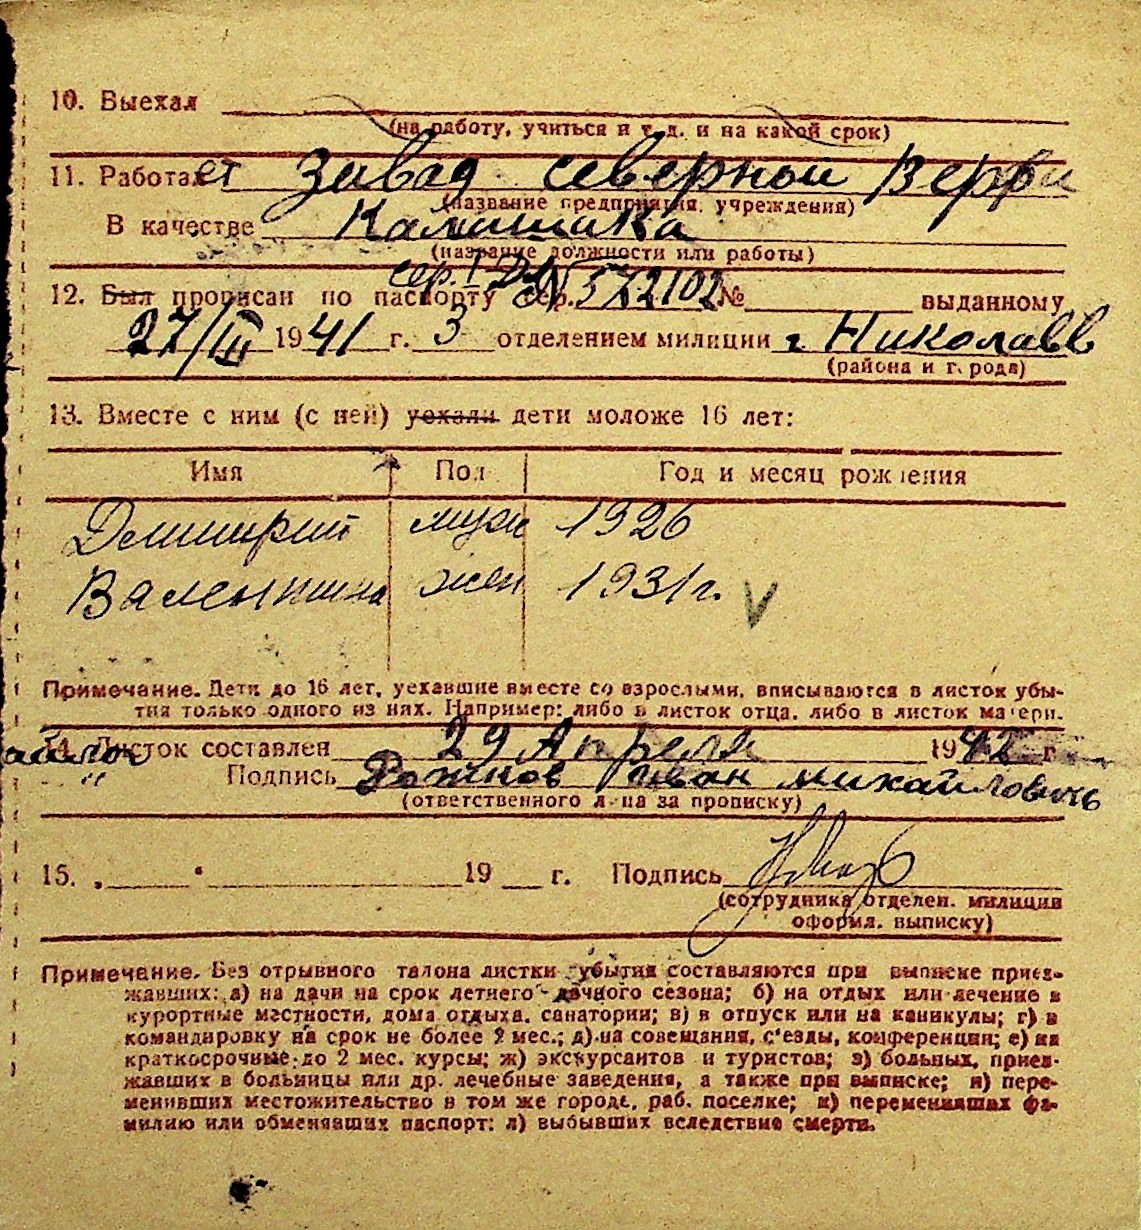 10. Выехал
(на работу, учиться и т. д. и на какой срок)
11. Работает Завад северной Верфи
(название предприятия, учреждения)
В качестве
(название должности или работы)
12. Был прописан по паспорту сер. № 572102 № выданному
27/III 1941 г. 3 отделением милиции г. Николаев
(района и города)
13. Вместе с ним (с ней) уехали дети моложе 16 лет:
Имя Пол Год и месяц рождения
Дмитрий муж 1926
Валентина жен 1931 г.
Примечание. Дети до 16 лет, уехавшие вместе со взрослыми, вписываются в листок убы-
тия только одного из них. Например: либо в листок отца, либо в листок матери.
14. Листок составлен 29 Апреля 1942 г.
Подпись Иван михайлович
(ответственного л-ца за прописку)
15. „ “ 19 г. Подпись
(сотрудника отделен. милиции
оформл. выписку)
Примечание. Без отрывного талона листки убытия составляются при выписке приез-
жавших: а) на дачи на срок летнего дачного сезона; б) на отдых или лечение в
курортные местности, дома отдыха, санатории; в) в отпуск или на каникулы; г) в
командировку на срок не более 2 мес.; д) на совещания, с'езды, конференции; е) на
краткосрочные до 2 мес. курсы; ж) экскурсантов и туристов; з) больных, приез-
жавших в больницы или др. лечебные заведения, а также при выписке; и) пере-
менивших местожительство в том же городе, раб. поселке; к) переменивших фа-
милию или обменявших паспорт; л) выбывших вследствие смерти.